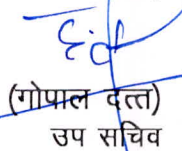 (गोपाल दत्त)
उप सचिव